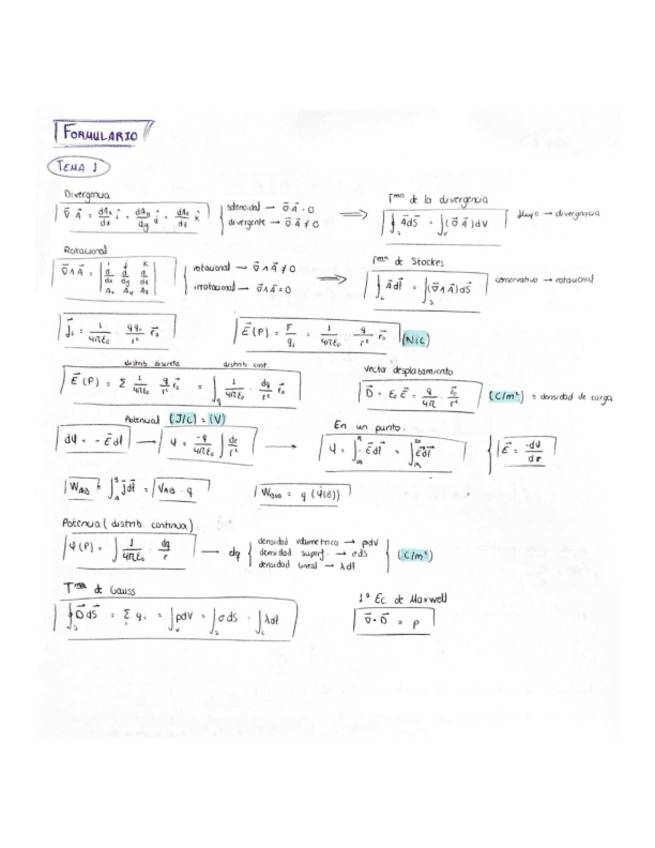 FORMULARIO
TEMA 1
Divergencia
∇⃗ A⃗ = dAx/dx i⃗ + dAy/dy j⃗ + dAz/dz k⃗ { solenoidal → ∇⃗ A⃗ = 0 divergente → ∇⃗ A⃗ ≠ 0 ⇒
Tma de la divergencia
∮s A⃗ dS⃗ = ∫v (∇⃗ A⃗) dV flujo → divergencia
Rotacional
∇⃗ ∧ A⃗ = | i j k ; d/dx d/dy d/dz ; Ax Ay Az | { rotacional → ∇⃗ ∧ A⃗ ≠ 0 irrotacional → ∇⃗ ∧ A⃗ = 0 ⇒
Tma de Stockes
∮L A⃗ dl⃗ = ∫s (∇⃗ ∧ A⃗) dS⃗ conservativo → rotacional
= 1/4πε₀ · qq₀/r² r⃗₀
E⃗(P) = F/q₀ = 1/4πε₀ · q/r² r⃗₀ (N/C)
distrib. discreta distrib. cont.
E⃗(P) = Σ 1/4πε₀ q/r² r⃗₀ = ∫q 1/4πε₀ · dq/r² r⃗₀
Vector desplazamiento
D⃗ = ε₀ E⃗ = q/4π · r⃗₀/r² (C/m²) = densidad de carga
Potencial (J/C) = (V)
dφ = - E⃗ dl⃗ → φ = -q/4πε₀ ∫ dr/r² →
En un punto:
φ = ∫ - E⃗ dl⃗ = ∫ E⃗ dl⃗ { E⃗ = -dφ/dr
= VAB · q
= q (φ(B))
Potencia (distrib. continua)
φ(P) = ∫ 1/4πε₀ · dq/r → dq { densidad volumétrica → ρdV densidad superf. → σdS densidad lineal → λdl } (C/m²)
Tma de Gauss
∮s D⃗ dS⃗ = Σ qi = ∫v ρdV = ∫s σdS = ∫L λdl
1ª Ec de Maxwell
∇⃗ · D⃗ = ρ